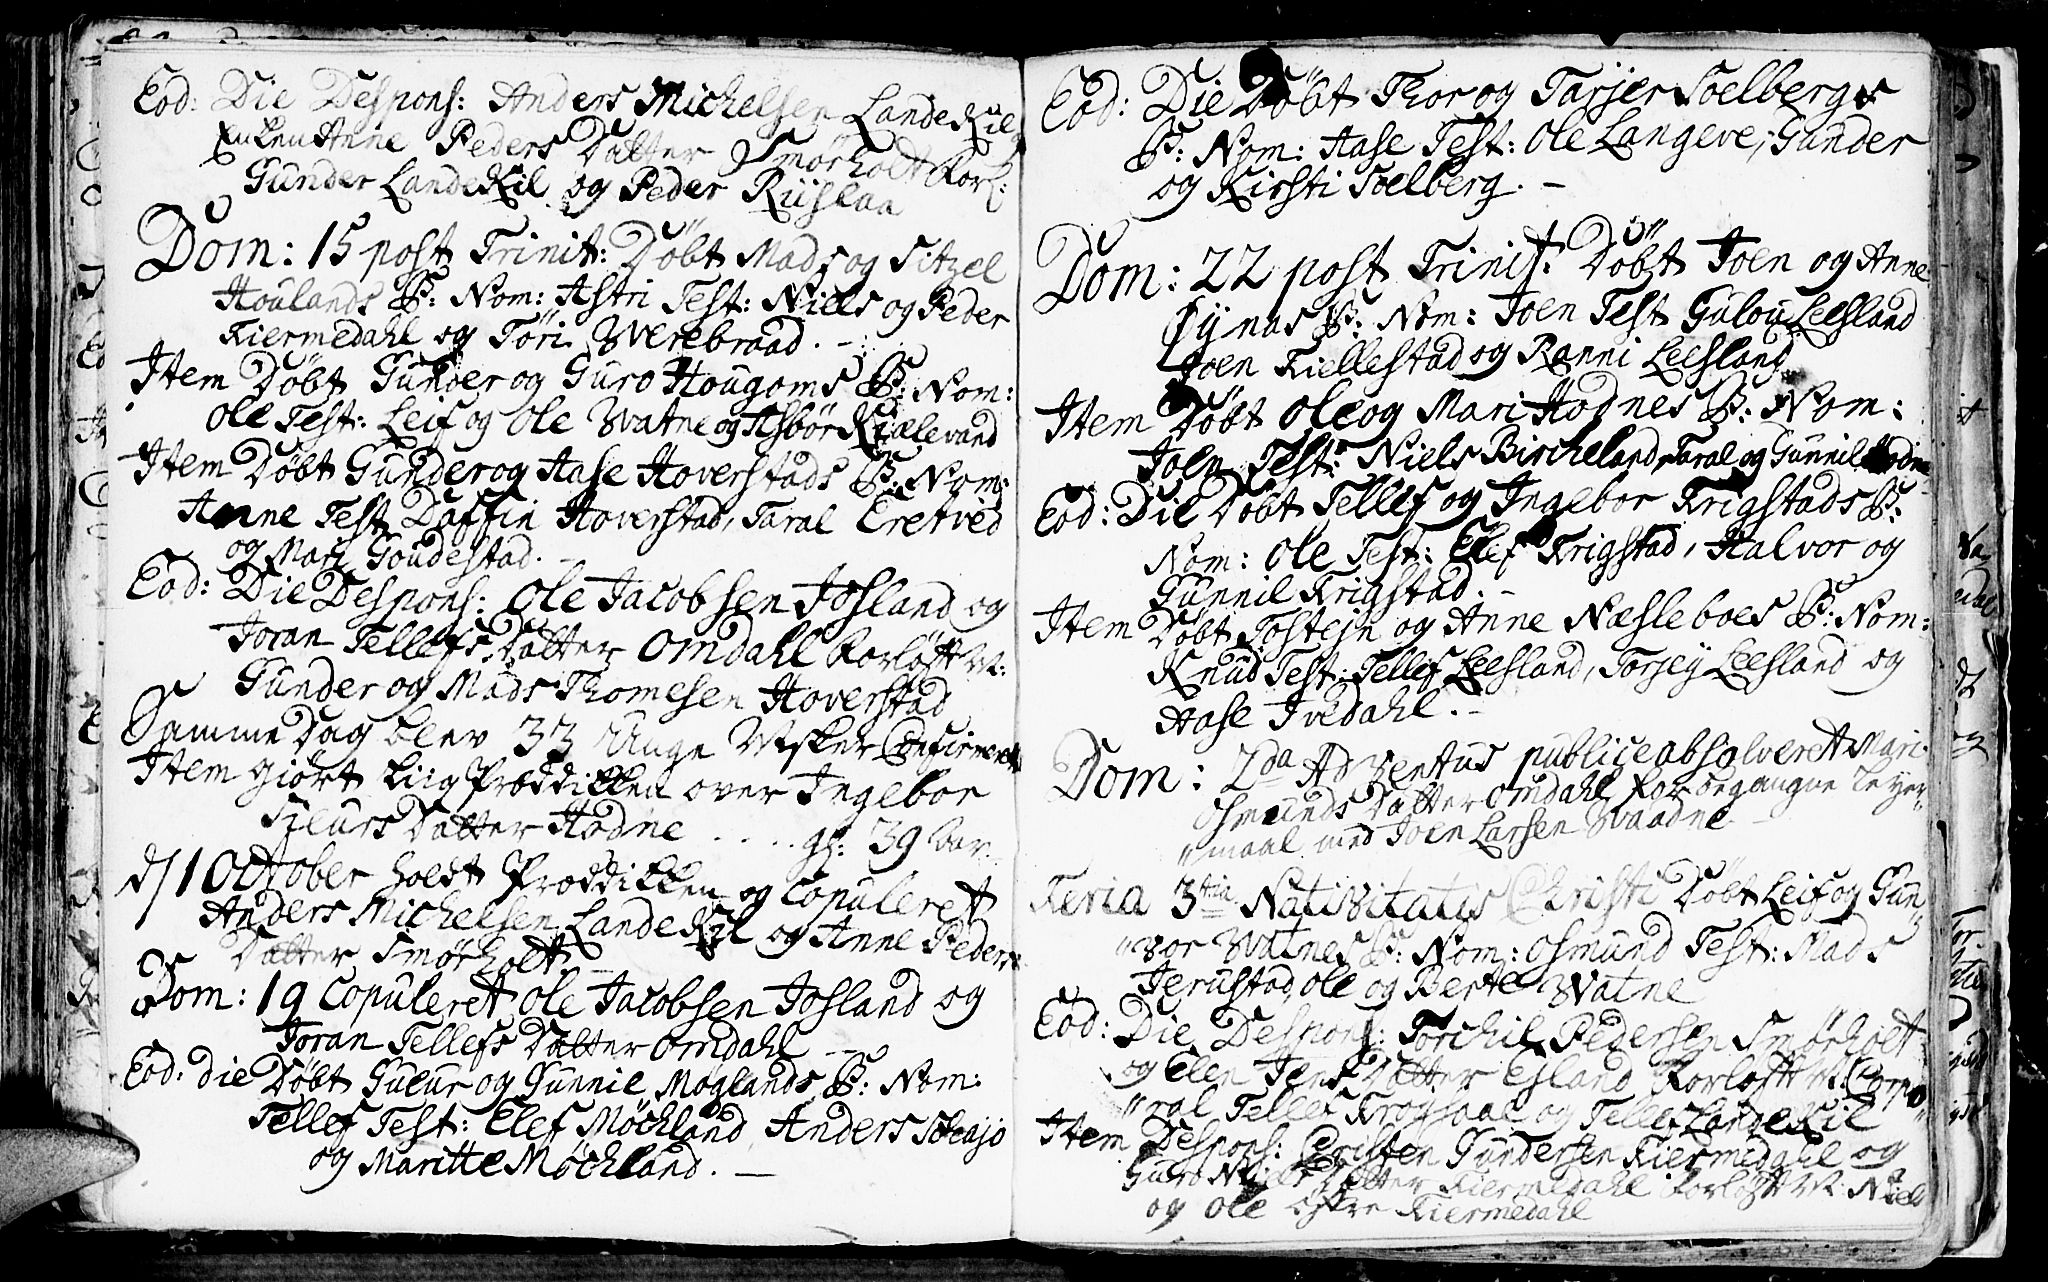 Eod: Die Despons: Anders Michelsen LandeKiil
Enken Anne Peders Datter Smørholt Forl:
Gunder LandeKil og Peder Riislaa
Dom: 15 post Trinit: Döbt Mads og Sitzel
Houlands B: Nom: Astri Test: Niels og Peder
Kiermedahl og Töri Werebraad. –
Item Döbt Gunder og Guro Hougoms B: Nom:
Ole Test: Leif og Ole Watne og Asbör Kielevand
Item Döbt Gunder og Aase Hoverstads B: Nom:
Anne Test Daffin Hoverstad, Taral Eretved
og Mari Goudestad. –
Eod: Die Despons: Ole Jacobsen Josland og
Joran Tellefs Datter Omdahl Forløft M:
Gunder og Mads Thomesen Hoverstad
Samme Dag blev 33 Unge Msker Confirmeret
Item giort Liig Præddikken over Ingebor
Datter Hodne .... gl: 39 aar.
d/ 1 October holdt Præddikken og Copuleret
Anders Michelsen LandeKil og Anne Peders
Datter Smørholt –
Dom: 19 Copuleret Ole Jacobsen Josland og
Joran Tellefs Datter Omdahl –
Eod: die Döbt Gulur og Gunnil Moglands B: Nom:
Tellef Test: Elef Möchland Anders
og Maritte Möchland. –
Eod: Die Döbt Thor og Tarjer Solbergs
B: Nom: Aase Test: Ole Langeve, Gunder
og Kirsti Solberg. –
Dom: 22 post Trinit: Döbt Joen og Anne
Öynas B: Nom: Joen Test Gulou Leesland
Joen Kiellestad og Ranni Leesland
Item Döbt Ole og Mari Hödnes B: Nom:
Joen Test: Niels Bircheland, Taral og Gunnil Hodne
Eod: Die Döbt Tellef og Ingebor Frigstads B:
Nom: Ole Test: Elef Frigstad, Halvor og
Gunnil Frigstad. –
Item Döbt Tostejn og Anne Næsleboes B: Nom:
Knud Test: Tellef Leesland, Torjey Leesland og
Aase Ivedahl. –
Dom: 2da Adventus publice absolveret Mari
Osmunds Datter Omdahl for begangne Leyer„
„maal med Joen Larsen Waadne –
Feria 3tia Nativitatis Christi Döbt Leif og Gun„
„vor Watnes B: Nom: Osmund Test: Mads
Jerustad, Ole og Berte Watne
Eod: Die Despons: Torchil Pedersen Smörholt
og Elen Jens Datter Esland Forløft M: Corpo„
„ral Tellef Frøysaae og Tellef LandeKil
Item Despons: Christen Gundersen Kiermedahl og
Guro Niels Datter Kiermedahl Forløft M: Niels
og Ole Östre Kiermedahl